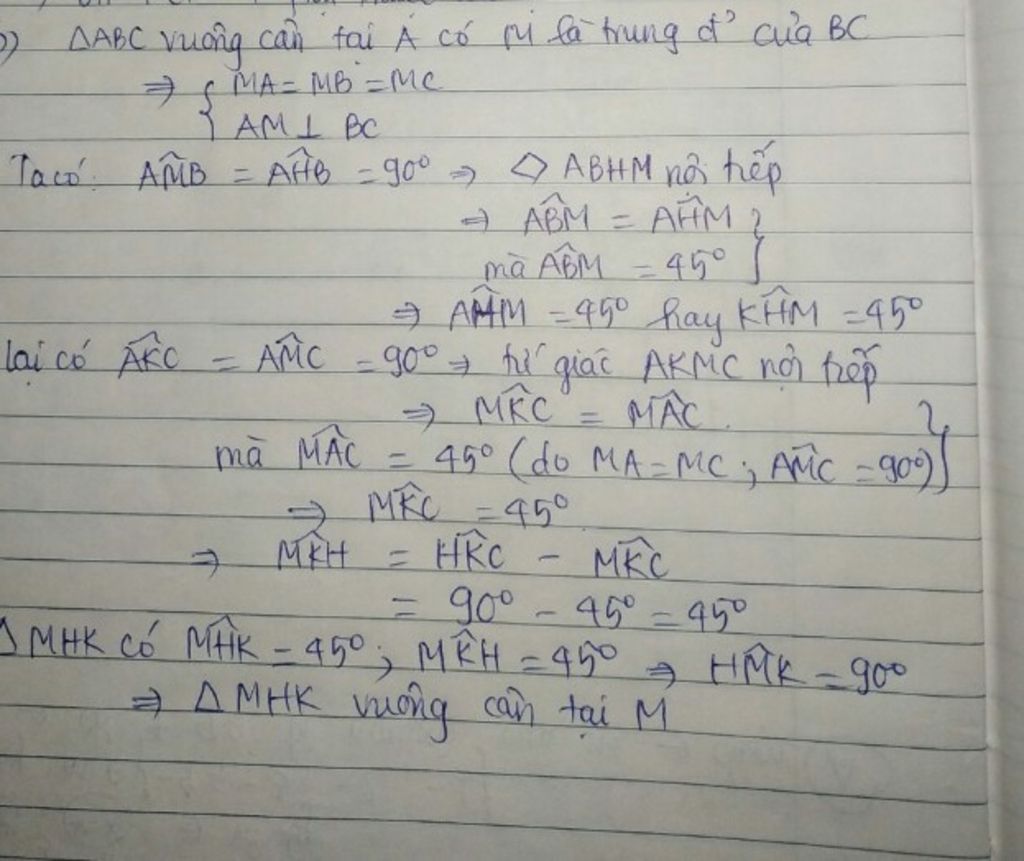 b) ΔABC vuông cân tại A có M là trung đ' của BC
⇒ { MA = MB = MC
AM ⊥ BC
Ta có: AM̂B = AĤB = 90° ⇒ ◇ ABHM nội tiếp
⇒ AB̂M = AĤM }
mà AB̂M = 45° }
⇒ AĤM = 45° hay KĤM = 45°
lại có AK̂C = AM̂C = 90° ⇒ tứ giác AKMC nội tiếp
⇒ MK̂C = MÂC }
mà MÂC = 45° (do MA = MC ; AM̂C = 90°) }
⇒ MK̂C = 45°
⇒ MK̂H = HK̂C - MK̂C
= 90° - 45° = 45°
Δ MHK có MĤK = 45° ; MK̂H = 45° ⇒ HM̂K = 90°
⇒ Δ MHK vuông cân tại M